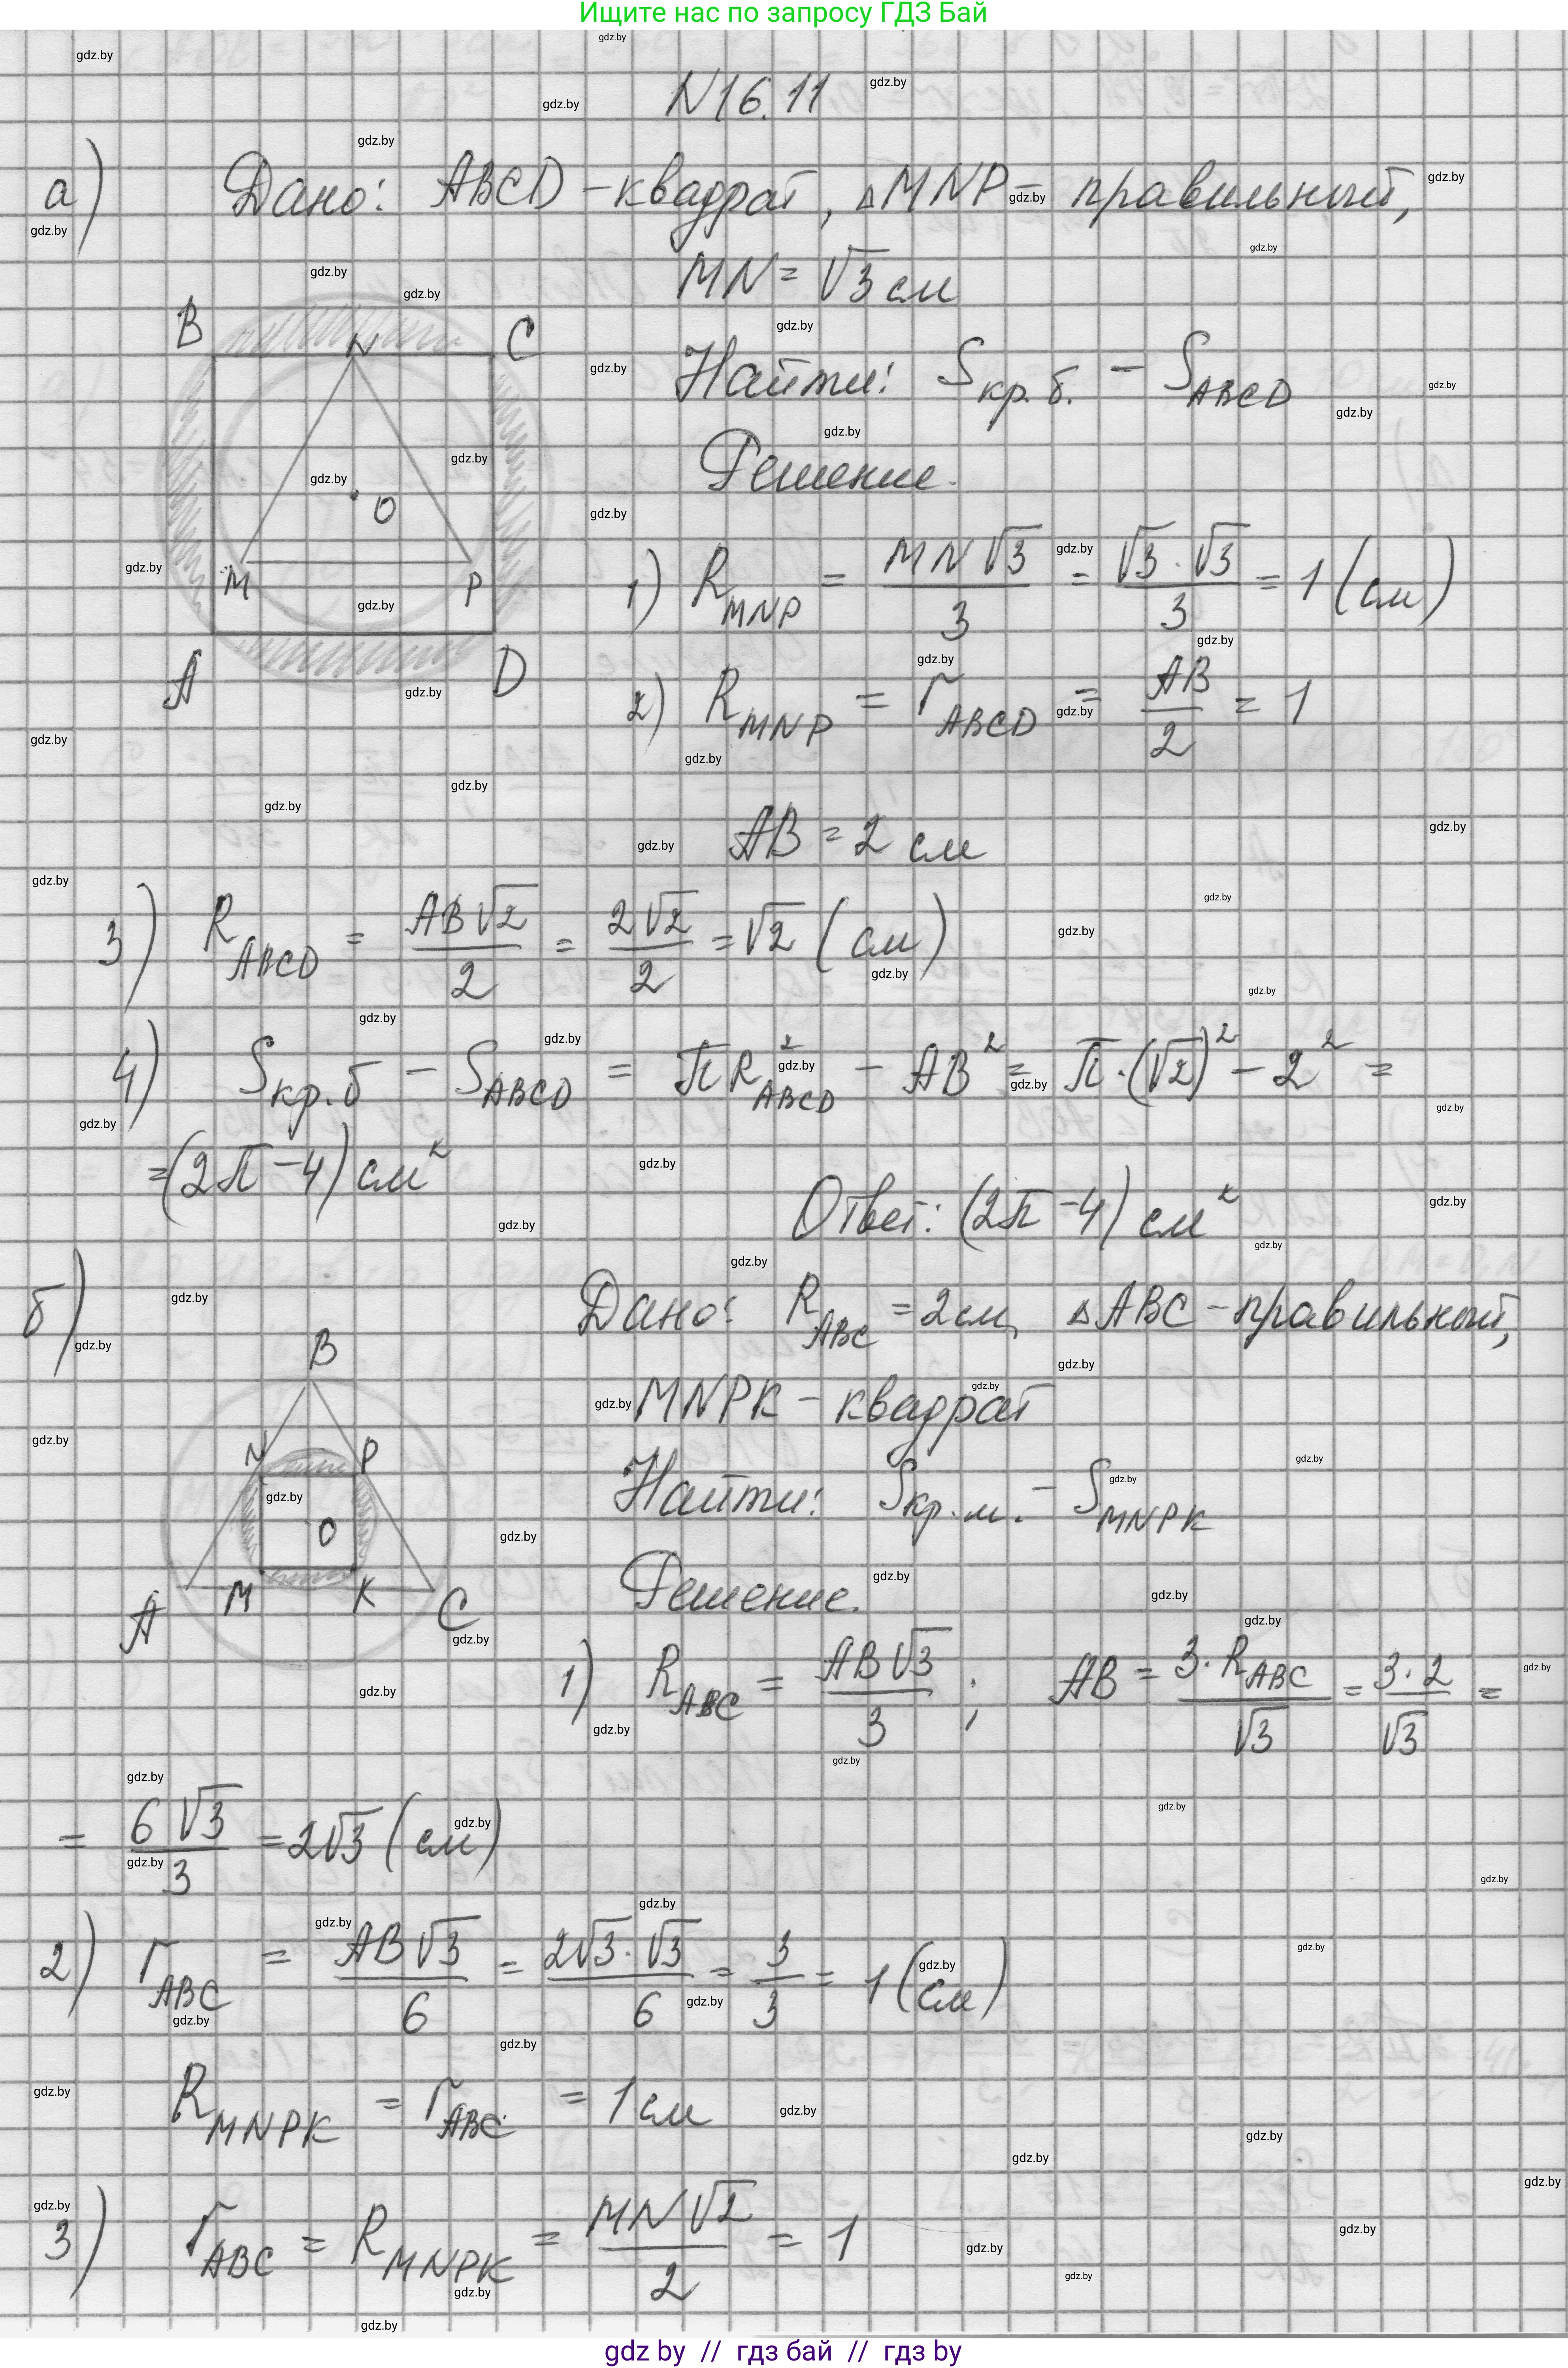 Ищите нас по запросу ГДЗ Бай
N16.11
а) Дано: ABCD - квадрат, △MNP - правильный,
MN = √3 см
Найти: Sкр.б. - S_ABCD
Решение.
B N C
O
M P
A D
1) R_MNP = MN√3/3 = √3·√3/3 = 1 (см)
2) R_MNP = r_ABCD = AB/2 = 1
AB = 2 см
3) R_ABCD = AB√2/2 = 2√2/2 = √2 (см)
4) Sкр.б - S_ABCD = πR²_ABCD - AB² = π·(√2)² - 2² =
= (2π - 4) см²
Ответ: (2π - 4) см²
б) Дано: R_ABC = 2 см, △ABC - правильный,
MNPK - квадрат
Найти: Sкр.м. - S_MNPK
Решение.
B
N P
O
A M K C
1) R_ABC = AB√3/3 ; AB = 3·R_ABC/√3 = 3·2/√3 =
= 6√3/3 = 2√3 (см)
2) r_ABC = AB√3/6 = 2√3·√3/6 = 3/3 = 1 (см)
R_MNPK = r_ABC = 1 см
3) r_ABC = R_MNPK = MN√2/2 = 1
gdz by // гдз бай // гдз by